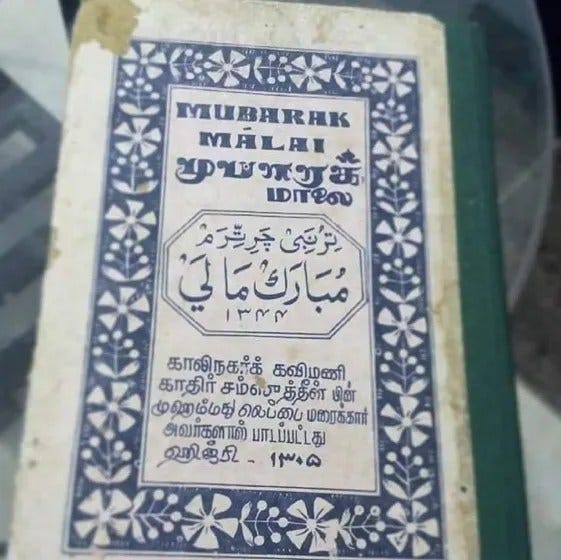 MUBARAK
MÁLAI
முபாரக்
மாலை
تِرُنَبِى چَرِتِّرَمْ
مُبَارَكْ مَالَيْ
١٣٤٤
காலிநகர்க் கவிமணி
காதிர் சம்ஸுத்தீன் பின்
முஹம்மது லெப்பை மரைக்கார்
அவர்களால் பாடப்பட்டது
ஹிஜ்ரி - ١٣٠٥